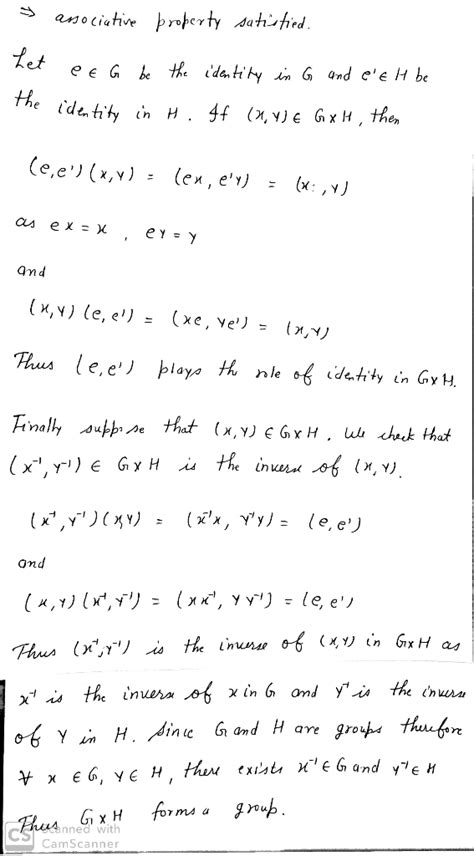 ⇒ associative property satisfied.
Let e ∈ G be the identity in G and e' ∈ H be
the identity in H. If (x,y) ∈ G×H, then
(e,e')(x,y) = (ex, e'y) = (x,y)
as ex = x , ey = y
and
(x,y)(e,e') = (xe, ye') = (x,y)
Thus (e,e') plays th role of identity in G×H.
Finally suppose that (x,y) ∈ G×H. We check that
(x⁻¹, y⁻¹) ∈ G×H is the inverse of (x,y).
(x⁻¹, y⁻¹)(x,y) = (x⁻¹x, y⁻¹y) = (e,e')
and
(x,y)(x⁻¹,y⁻¹) = (xx⁻¹, yy⁻¹) = (e,e')
Thus (x⁻¹,y⁻¹) is the inverse of (x,y) in G×H as
x⁻¹ is the inverse of x in G and y⁻¹ is the inverse
of y in H. Since G and H are groups therefore
∀ x ∈ G, y ∈ H, there exists x⁻¹ ∈ G and y⁻¹ ∈ H
Thus G×H forms a group.
CS Scanned with
CamScanner